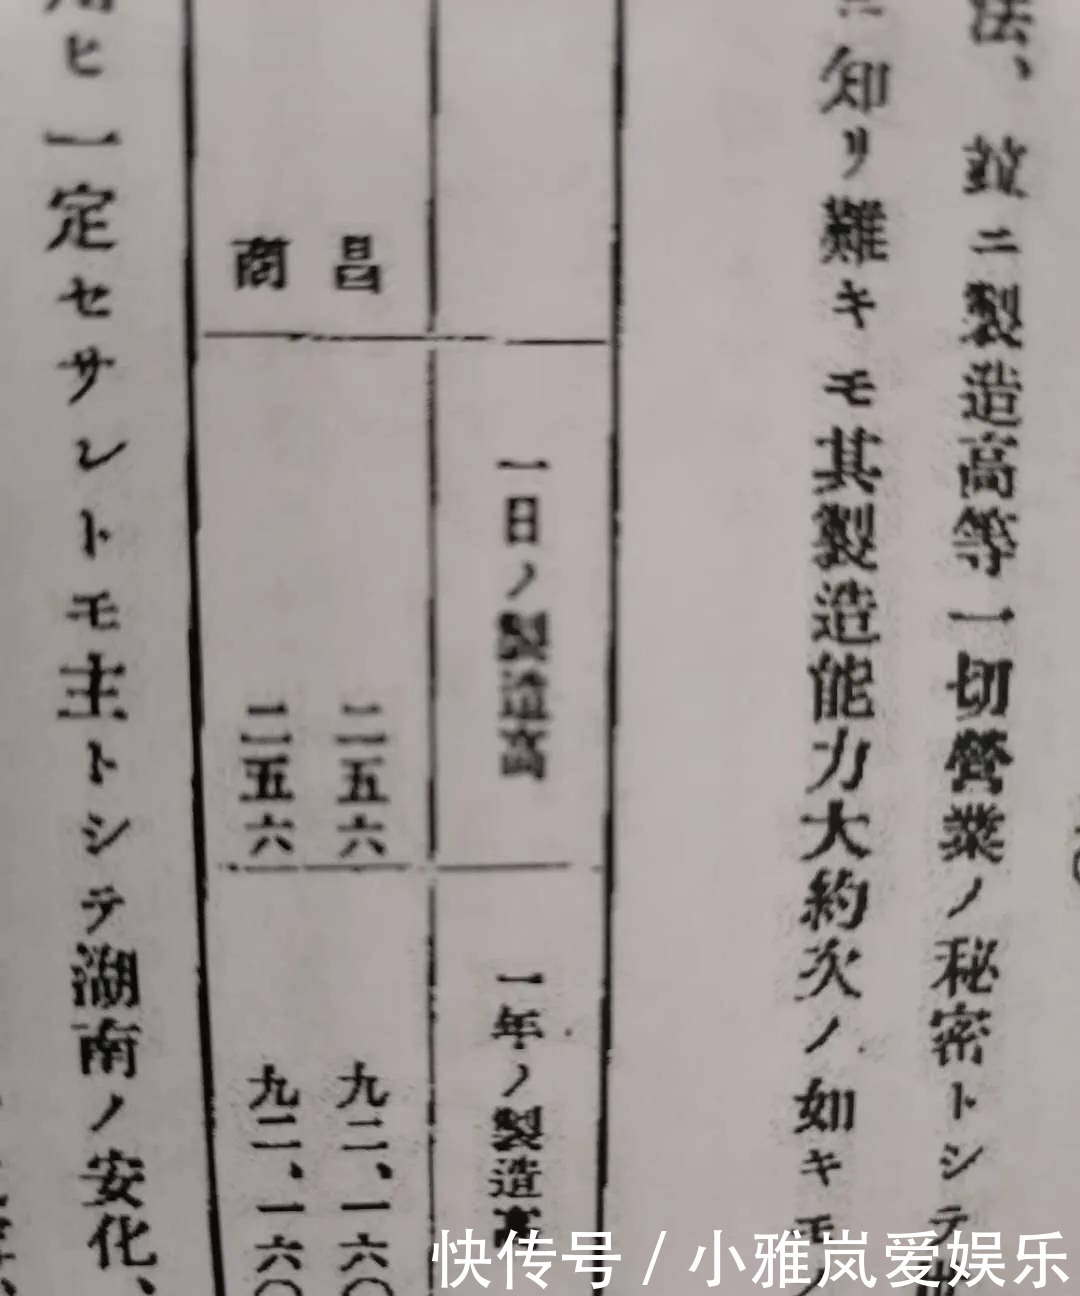 法、竝ニ製造高等一切營業ノ秘密トシテ
知リ難キモ其製造能力大約次ノ如キモノ
一日ノ製造高
一年ノ製造高
昌
二五六
九二、一六〇
商
二五六
九二、一六〇
ヒ一定セサレトモ主トシテ湖南ノ安化、
快传号 / 小雅岚爱娱乐